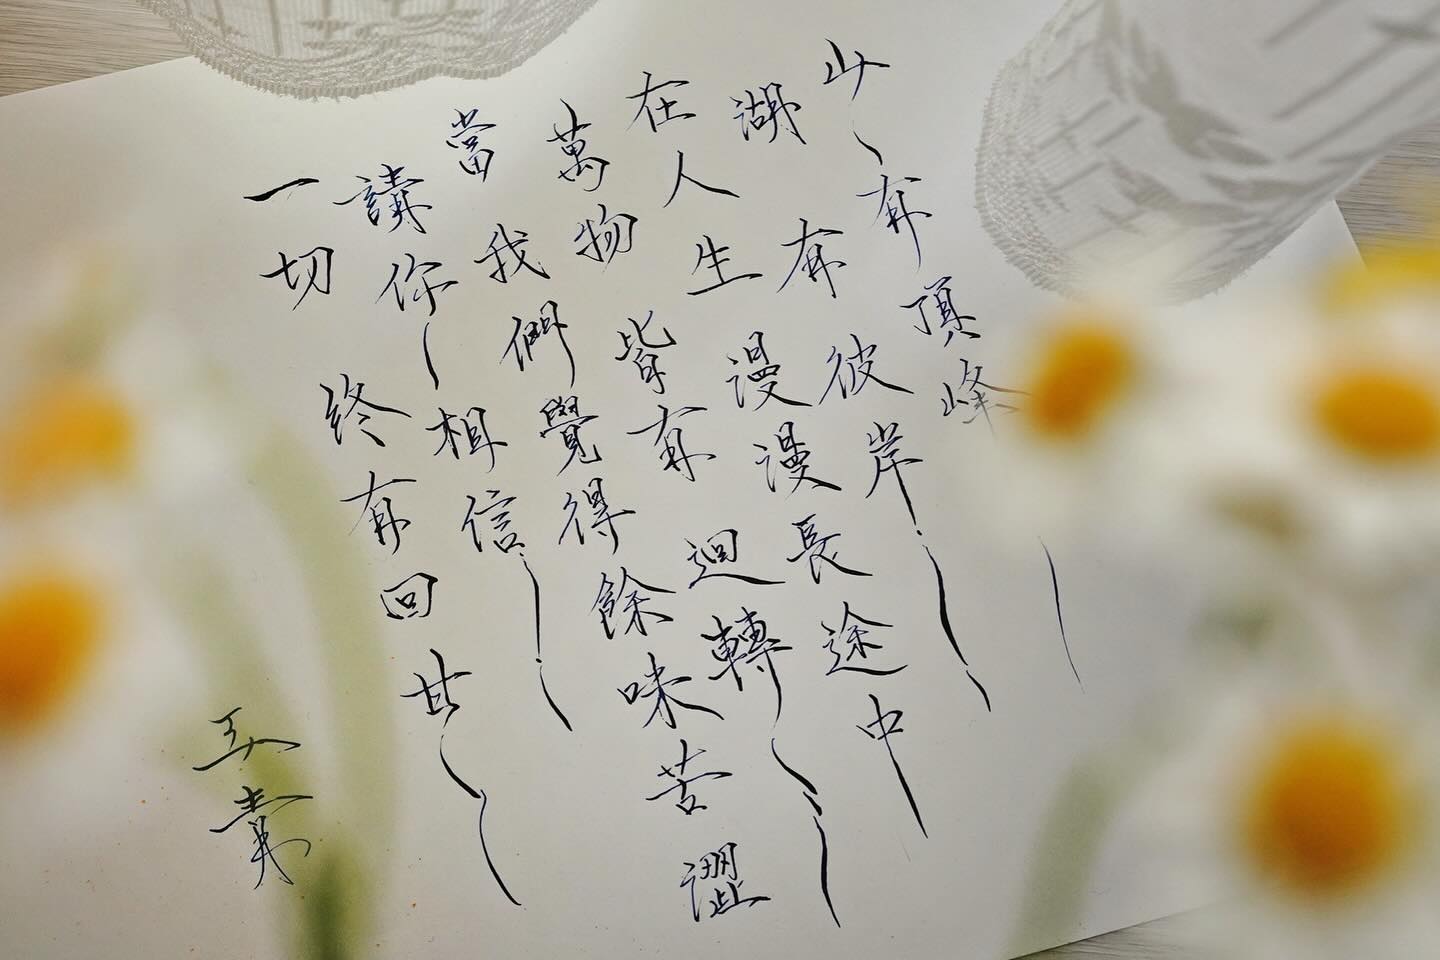 山有頂峰
湖有彼岸
在人生漫漫長途中
萬物皆有迴轉
當我們覺得餘味苦澀
請你相信
一切終有回甘